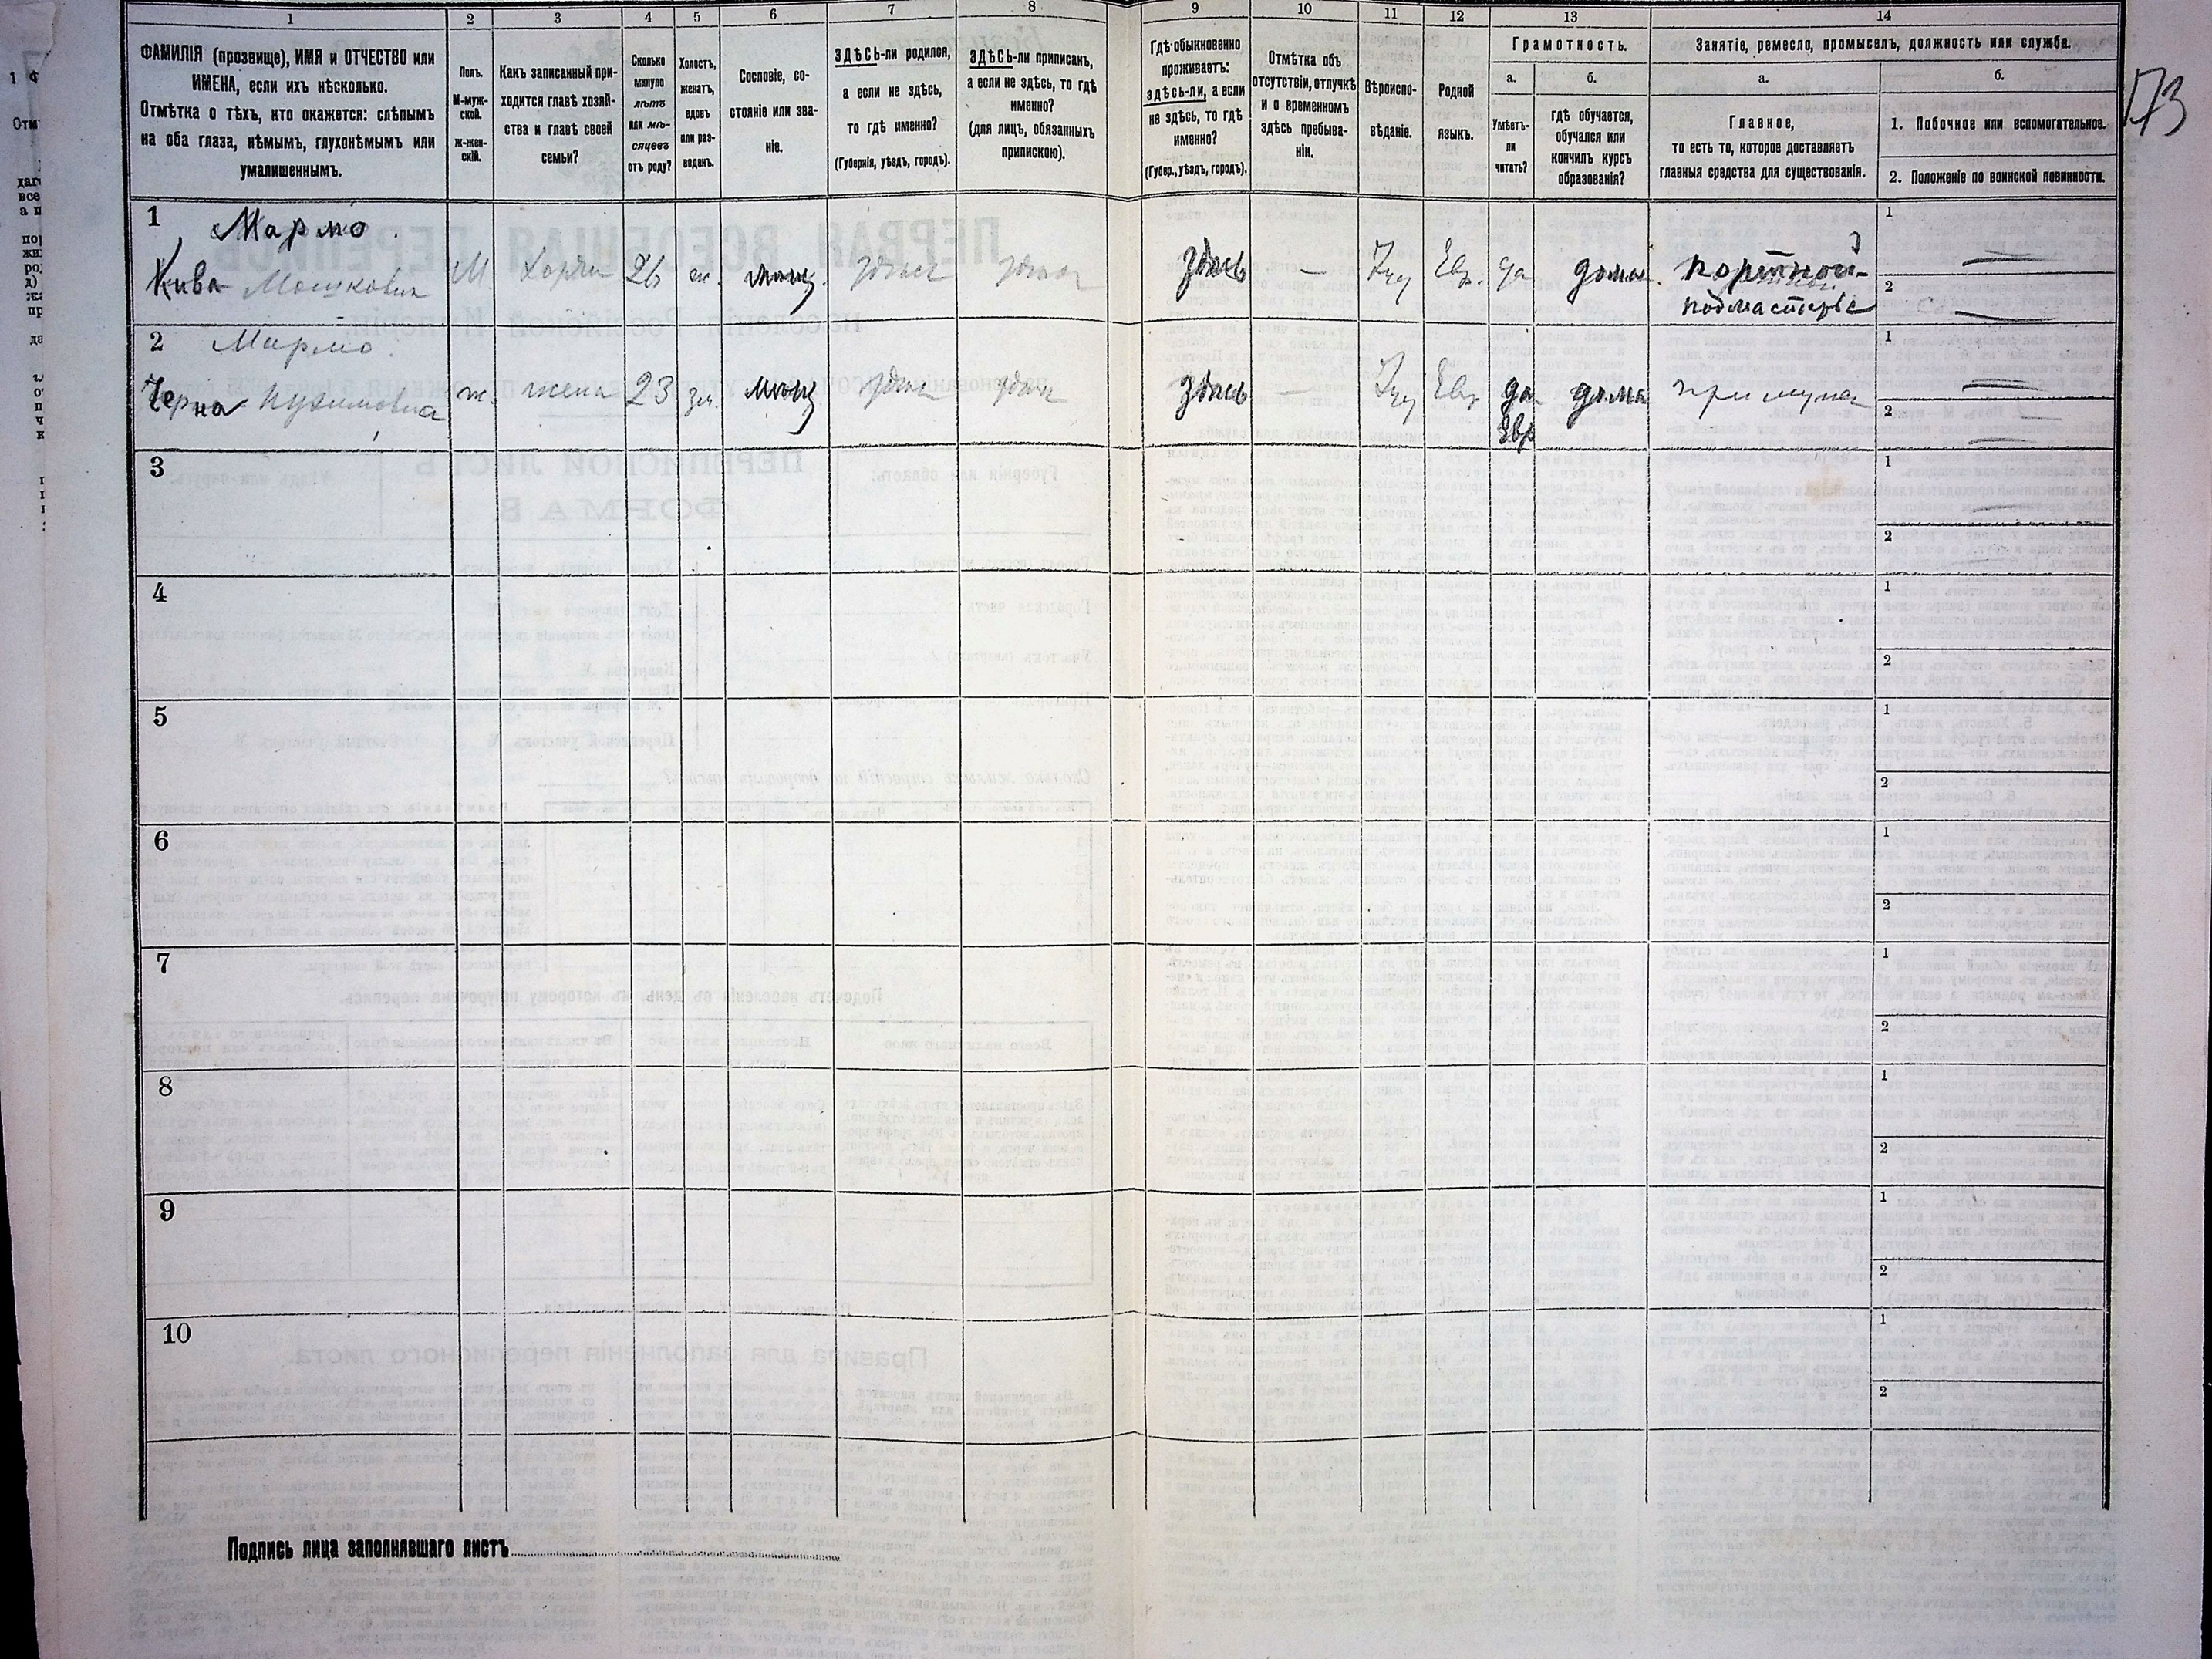 1 2 3 4 5 6 7 8 9 10 11 12 13 14
ФАМИЛІЯ (прозвище), ИМЯ и ОТЧЕСТВО или
ИМЕНА, если ихъ нѣсколько.
Отмѣтка о тѣхъ, кто окажется: слѣпымъ
на оба глаза, нѣмымъ, глухонѣмымъ или
умалишеннымъ.
Полъ.
М-муж-
ской.
ж-жен-
скій.
Какъ записанный при-
ходится главѣ хозяй-
ства и главѣ своей
семьи?
Сколько
минуло
лѣтъ
или мѣ-
сяцевъ
отъ роду?
Холостъ,
женатъ,
вдовъ
или раз-
веденъ.
Сословіе, со-
стояніе или зва-
ніе.
ЗДѢСЬ-ли родился,
а если не здѣсь,
то гдѣ именно?
(Губернія, уѣздъ, городъ).
ЗДѢСЬ-ли приписанъ,
а если не здѣсь, то гдѣ
именно?
(для лицъ, обязанныхъ
припискою).
Гдѣ обыкновенно
проживаетъ:
здѣсь-ли, а если
не здѣсь, то гдѣ
именно?
(Губер., уѣздъ, городъ).
Отмѣтка объ
отсутствіи, отлучкѣ
и о временномъ
здѣсь пребыва-
ніи.
Вѣроиспо-
вѣданіе.
Родной
языкъ.
Грамотность.
а.
Умѣетъ-
ли
читать?
б.
гдѣ обучается,
обучался или
кончилъ курсъ
образованія?
Занятіе, ремесло, промыселъ, должность или служба.
а.
Главное,
то есть то, которое доставляетъ
главныя средства для существованія.
б.
1. Побочное или вспомогательное.
2. Положеніе по воинской повинности.
173
1 Мармо
Кива Мошковичъ М 26 мѣщ. здѣсь здѣсь здѣсь — Іуд Евр. да дома портной
подмастерье
1
2
2 Мармо
Черна ж. жена 23 мѣщ здѣсь здѣсь здѣсь — Іуд Евр да дома при мужѣ
Евр
1
2
3
1
2
4
1
2
5
1
2
6
1
2
7
1
2
8
1
2
9
1
2
10
1
2
Подпись лица заполнявшаго листъ